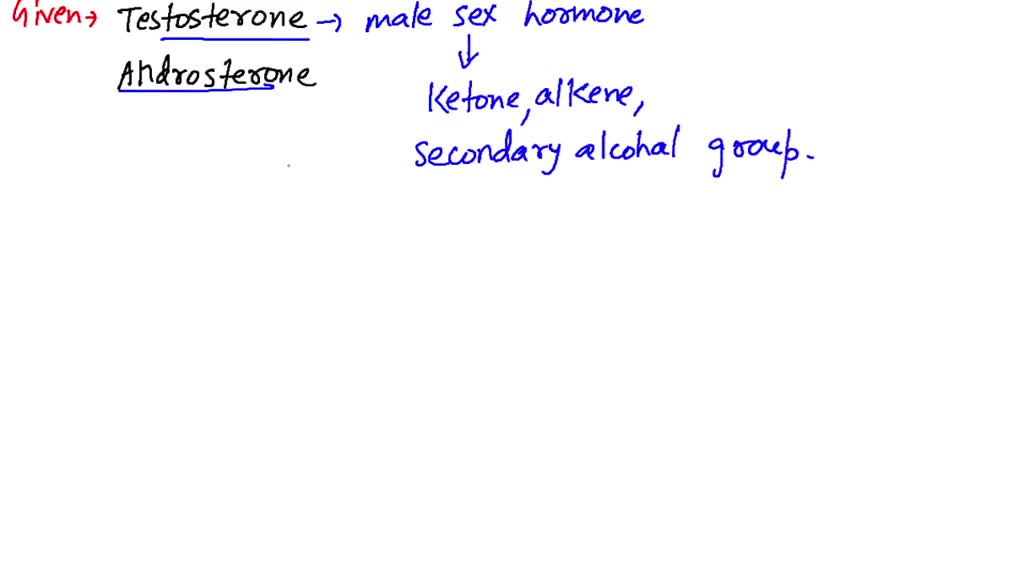 Given→ Testosterone → male sex hormone
↓
Androsterone
Ketone, alkene,
secondary alcohal group.